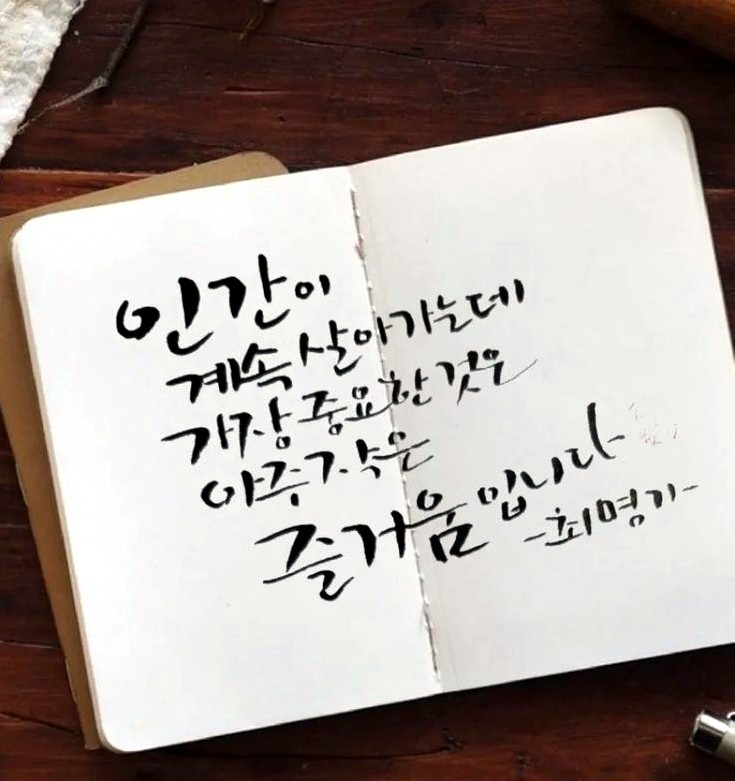 인간이
계속 살아가는데
가장 중요한 것은
아주 작은
즐거움입니다
-최명기-